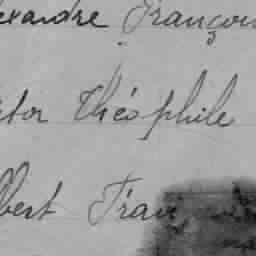 exandre François
ctor Théophile
lbert Fran